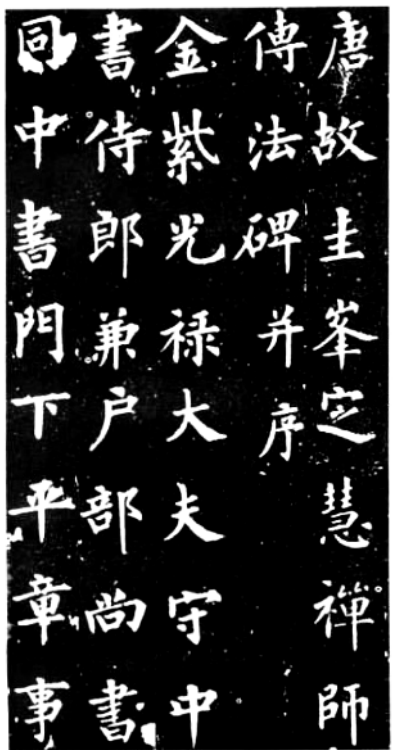 唐故圭峯定慧禪師
傳法碑并序
金紫光禄大夫守中
書侍郎兼户部尚書
同中書門下平章事